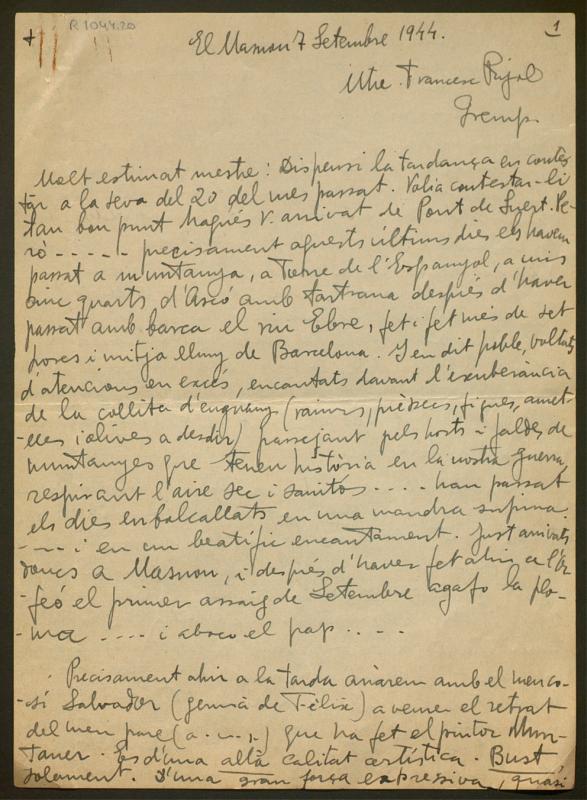 R 1044.20
1
El Masnou 7 Setembre 1944.
Mtre. Francesc Pujol
Tremp.
Molt estimat mestre: Dispensi la tardança en contes-
tar a la seva del 20 del mes passat. Volia contestar-li
tan bon punt hagués V. arrivat de Pont de Suert. Pe-
rò ----- precisament aquests últims dies els havem
passat a muntanya, a Torre de l'Espanyol, a uns
cinc quarts d'Ascó amb tartrana després d'haver
passat amb barca el riu Ebre, fet i fet més de set
hores i mitja lluny de Barcelona. I en dit poble, voltats
d'atencions en excés, encantats davant l'exuberància
de la collita d'enguany (raïms, préssecs, figues, amet-
lles i olives a desdir) passejant pels horts i faldes de
muntanyes que tenen història en la nostra guerra,
respirant l'aire sec i sanitós .... han passat
els dies embolcallats en una mandra supina.
---- i en un beatífic encantament. Just arrivats
doncs a Masnou, i després d'haver fet ahir a l'Or-
feó el primer assaig de Setembre agafo la plo-
ma .... i aboco el pap ....
Precisament ahir a la tarda anàrem amb el meu co-
sí Salvador (germà de Fèlix) a veure el retrat
del meu pare (a. -..) que ha fet el pintor Mun-
taner. És d'una alta calitat artística. Bust
solament. D'una gran força expressiva, quasi